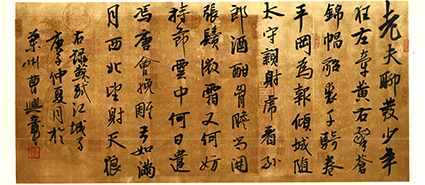 老夫聊發少年
狂左牽黃右擎蒼
錦帽貂裘千騎卷
平岡為報傾城隨
太守親射虎看孫
郎酒酣胸膽尚開
張鬢微霜又何妨
持節雲中何日遣
馮唐會挽雕弓如滿
月西北望射天狼
右錄蘇軾江城子
庚子仲夏月於
州曹興